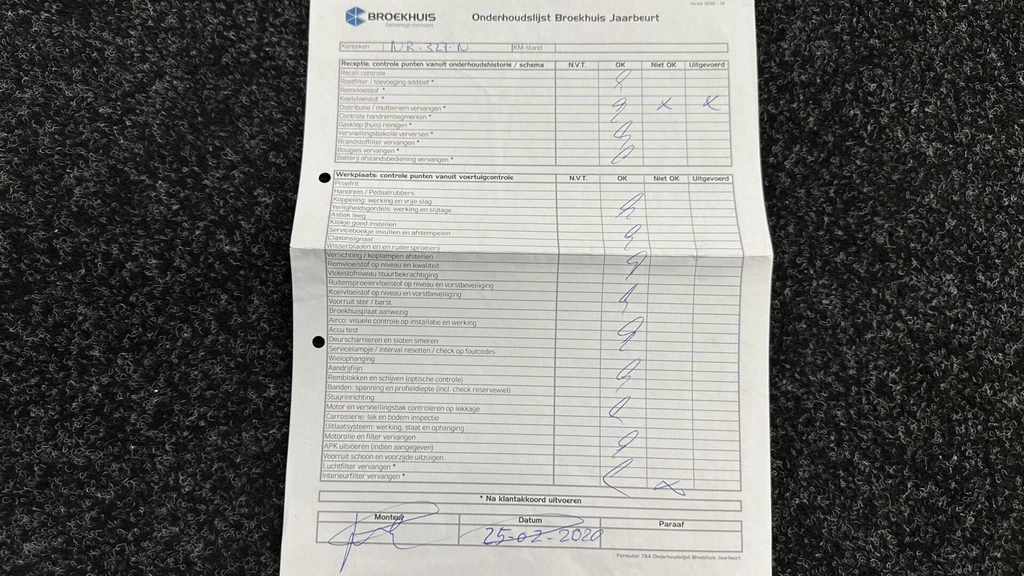 BROEKHUIS
Onderhoudslijst Broekhuis Jaarbeurt
Kenteken NR-327-N KM-stand
Receptie: controle punten vanuit onderhoudshistorie / schema N.V.T. OK Niet OK Uitgevoerd
Recall controle
Roetfilter / toevoeging additief *
Remvloeistof *
Koelvloeistof *
Distributie / multieriem vervangen * x x
Controle handremsegmenten *
Gasklep (huis) reinigen *
Versnellingsbakolie verversen *
Brandstoffilter vervangen *
Bougies vervangen *
Batterij afstandsbediening vervangen *
Werkplaats: controle punten vanuit voertuigcontrole N.V.T. OK Niet OK Uitgevoerd
Proefrit
Handrem / Pedaalrubbers
Koppeling: werking en vrije slag
Veiligheidsgordels: werking en slijtage
Asbak leeg
Klokje goed instellen
Serviceboekje invullen en afstempelen
Claxonsignaal
Wisserbladen en en ruitersproeiers
Verlichting / koplampen afstellen
Remvloeistof op niveau en kwaliteit
Vloeistofniveau stuurbekrachtiging
Ruitensproeiervloeistof op niveau en vorstbeveiliging
Koelvloeistof op niveau en vorstbeveiliging
Voorruit ster / barst
Broekhuisplaat aanwezig
Airco: visuele controle op installatie en werking
Accu test
Deurscharnieren en sloten smeren
Servicelampje / interval resetten / check op foutcodes
Wielophanging
Aandrijflijn
Remblokken en schijven (optische controle)
Banden: spanning en profieldiepte (incl. check reservewiel)
Stuurinrichting
Motor en versnellingsbak controleren op lekkage
Carrosserie: lak en bodem inspectie
Uitlaatsysteem: werking, staat en ophanging
Motorolie en filter vervangen
APK uitvoeren (indien aangegeven)
Voorruit schoon en voorzijde uitzuigen
Luchtfilter vervangen *
Interieurfilter vervangen * x
* Na klantakkoord uitvoeren
Monteur Datum Paraaf
25-02-2020
Formulier 754 Onderhoudslijst Broekhuis Jaarbeurt